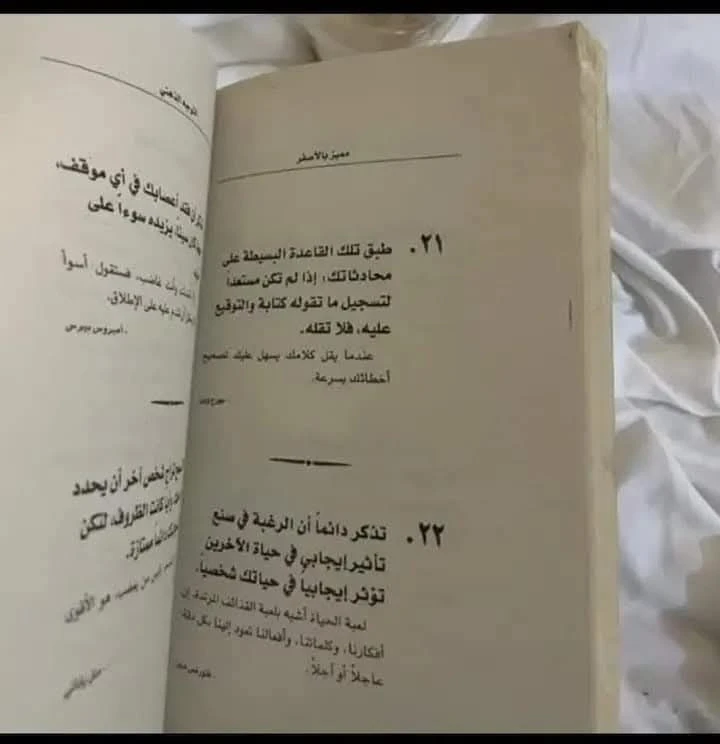 مميز بالأصفر
٢١. طبق تلك القاعدة البسيطة على
محادثاتك: إذا لم تكن مستعداً
لتسجيل ما تقوله كتابة والتوقيع
عليه، فلا تقله.
عندما يقل كلامك يسهل عليك تصحيح
أخطائك بسرعة.
٢٢. تذكر دائماً أن الرغبة في صنع
تأثير إيجابي في حياة الآخرين
تؤثر إيجابياً في حياتك شخصياً.
لعبة الحياة أشبه بلعبة القذائف المرتدة. إن
أفكارنا، وكلماتنا، وأفعالنا تعود إلينا بكل دقة
عاجلاً أو آجلاً.
فقد أعصابك في أي موقف،
يزيده سوءاً على
وأنت غاضب، فستقول أسوأ
عليه على الإطلاق.
- أمبروس بيرس
شخص آخر أن يحدد
كانت الظروف، لتكن
ممتازة.
من يغضب، هو الأقوى